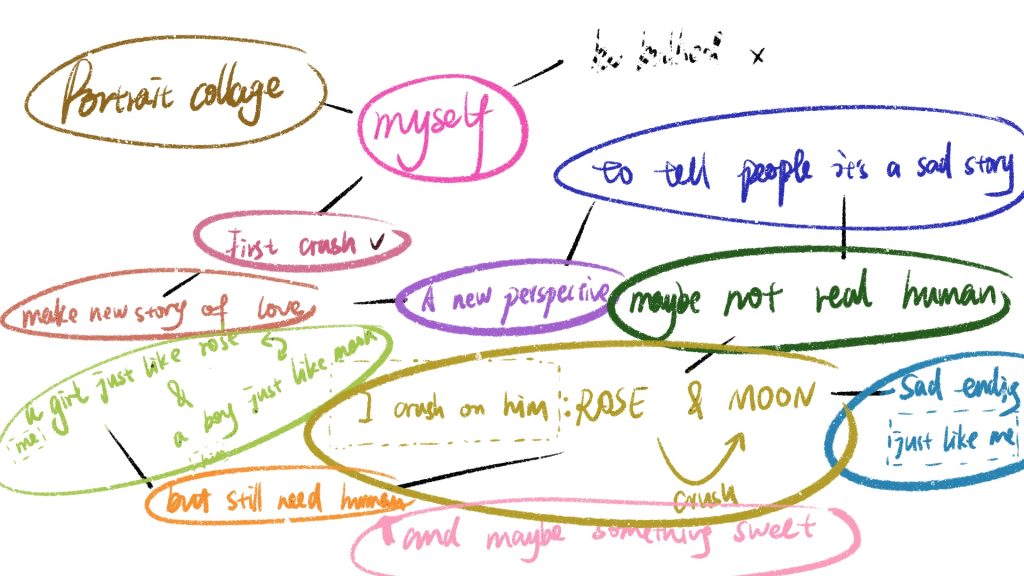 Portrait collage
myself
to tell people it's a sad story
First crush ✓
make new story of love
A new perspective
maybe not real human
a girl just like rose
&
a boy just like moon
me
him
I crush on him : ROSE & MOON
crush
sad ending
just like me
but still need human
and maybe something sweet